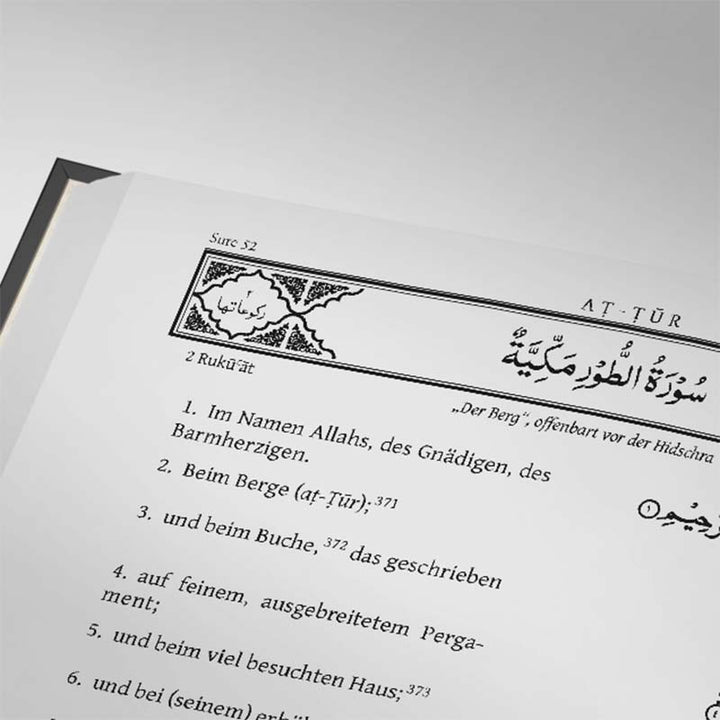 Sure 52
AṬ-ṬŪR
ركوعاتها ٢
سُوْرَةُ الطُّوْرِ مَكِّيَّةٌ
2 Rukūʿāt
„Der Berg“, offenbart vor der Hidschra
1. Im Namen Allahs, des Gnädigen, des
Barmherzigen.
2. Beim Berge (aṭ-Ṭūr);371
3. und beim Buche,372 das geschrieben
4. auf feinem, ausgebreitetem Perga-
ment;
5. und beim viel besuchten Haus;373
6. und bei (seinem)